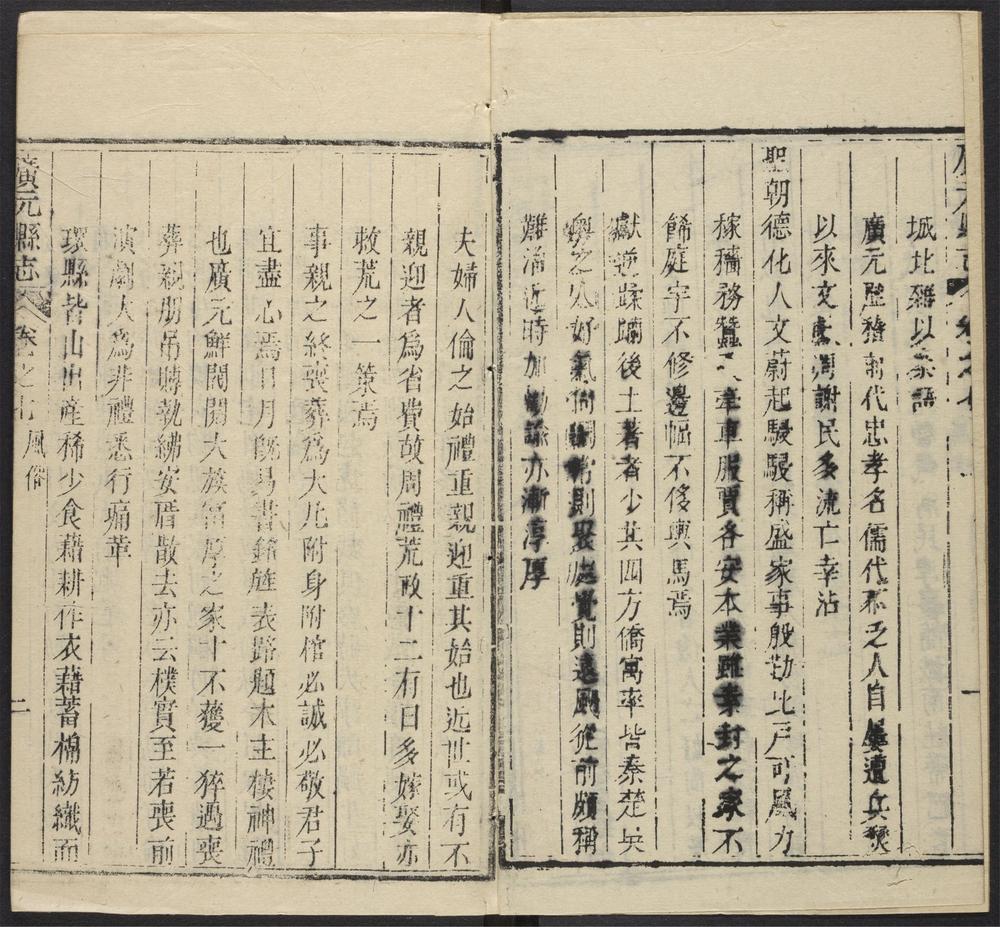 城北雜以秦語
廣元歷稽前代忠孝名儒代不乏人自屢遭兵燹
以來文獻凋謝民多流亡幸沾
聖朝德化人文蔚起駸駸稱盛家事殷勤比戶可風力
稼穡務蠶 牽車服賈各安本業雖素封之家不
餙庭宇不修邊幅不侈輿馬焉
獻逆蹂躪後土著者少其四方僑寓率皆秦楚吳
粵之人好氣 則 從前頗稱
難治近時加 亦漸淳厚
夫婦人倫之始禮重親迎重其始也近世或有不
親迎者爲省費故周禮荒政十二有曰多嫁娶亦
救荒之一策焉
事親之終喪葬爲大凡附身附棺必誠必敬君子
宜盡心焉日月旣易書銘旌表路題木主棲神禮
也廣元鮮閥閱大族富厚之家十不獲一猝遇喪
葬親朋吊賻執紼安厝散去亦云樸實至若喪前
演劇大爲非禮悉行痛革
環縣皆山出產稀少食藉耕作衣藉蓄棉紡織而
廣元縣志 卷之七 風俗 二